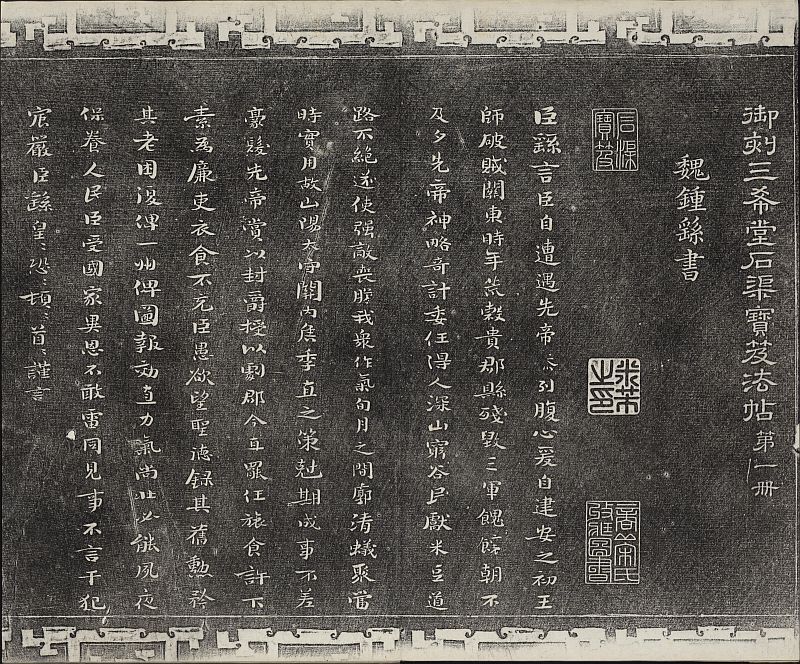 御刻三希堂石渠寶笈法帖第一册
魏鍾繇書
石渠寶笈
米芾之印
臣繇言臣自遭遇先帝忝列腹心爰自建安之初王
師破賊關東時年荒穀貴郡縣殘毀三軍餽饟朝不
及夕先帝神略奇計委任得人深山窮谷民獻米豆道
路不絶遂使强敵喪膽我衆作氣旬月之間廓清蟻聚當
時實用故山陽太守關内侯季直之策尅期成事不差
豪髮先帝賞以封爵授以劇郡今直罷任旅食許下
素爲廉吏衣食不充臣愚欲望聖德録其舊勳矜
其老困復俾一州俾圖報效直力氣尚壯必能夙夜
保養人民臣受國家異恩不敢雷同見事不言干犯
宸嚴臣繇皇皇恐恐頓頓首首謹言